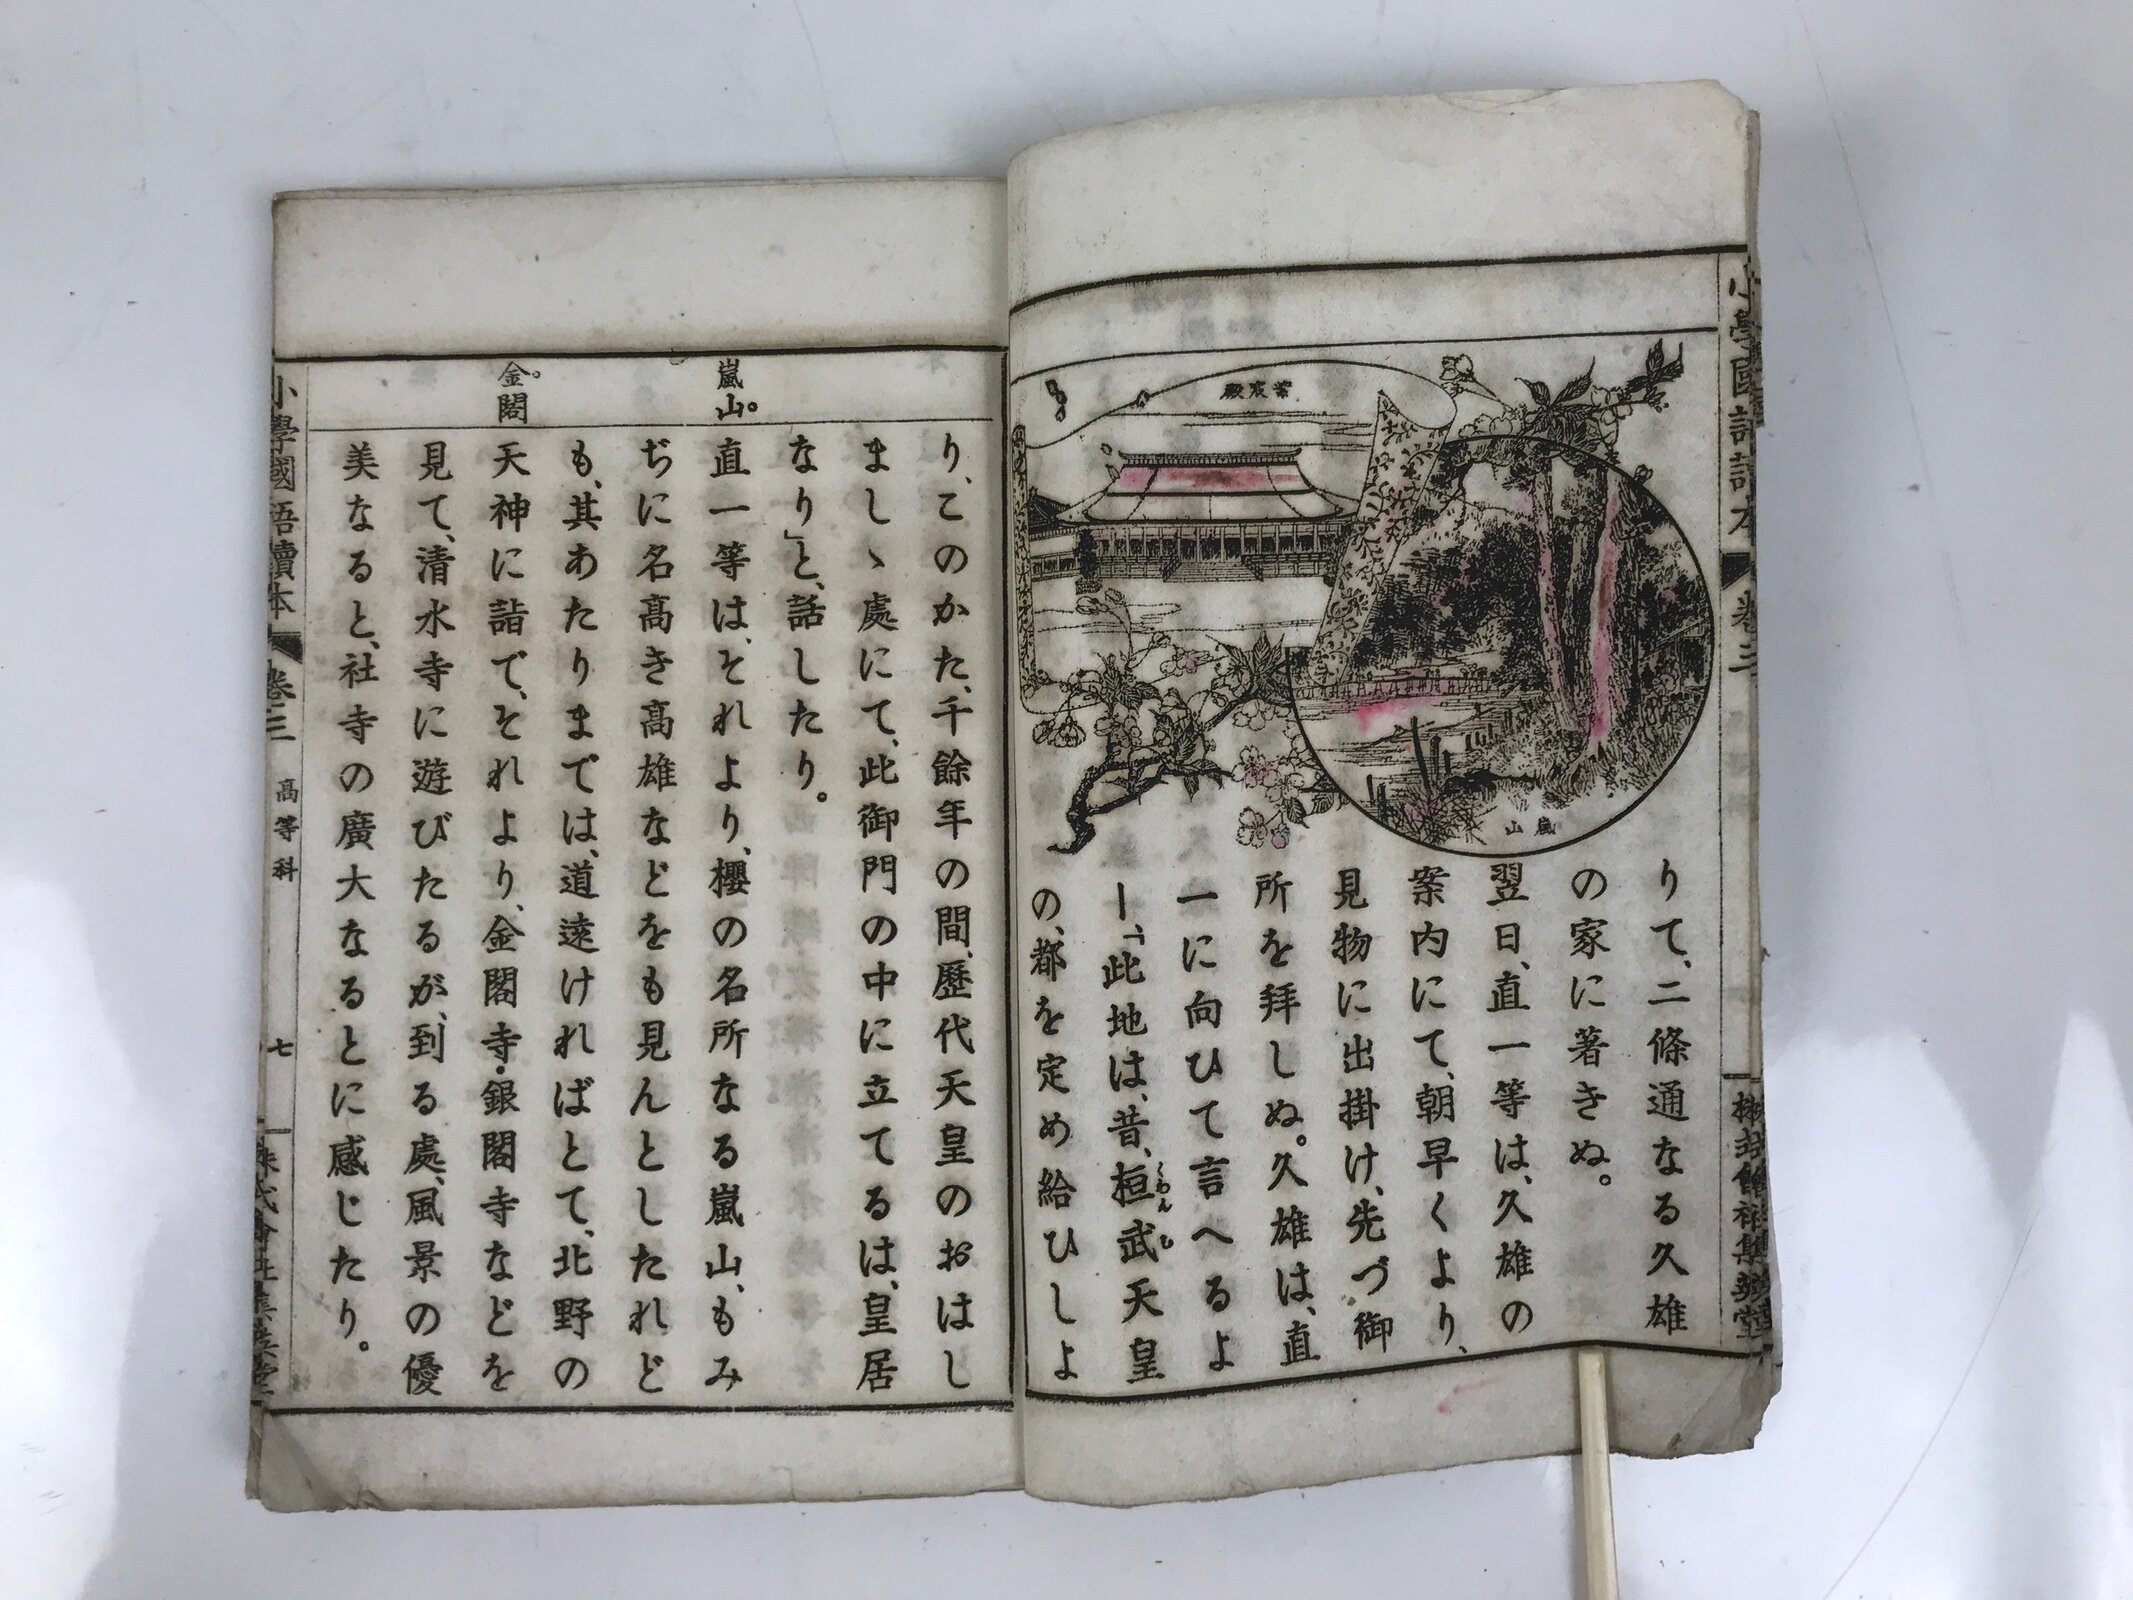 小學國語讀本
巻三
紫宸殿
嵐山
りて、二條通なる久雄
の家に著きぬ。
翌日、直一等は、久雄の
案内にて、朝早くより、
見物に出掛け、先づ御
所を拜しぬ。久雄は、直
一に向ひて言へるよ
ー、「此地は、昔、桓武天皇
くわんむ
の、都を定め給ひしよ
り、このかた、千餘年の間、歷代天皇のおはし
ましゝ處にて、此御門の中に立てるは、皇居
なり」と、話したり。
嵐山。
直一等は、それより、櫻の名所なる嵐山、もみ
ぢに名高き高雄などをも見んとしたれど
も、其あたりまでは、道遠ければとて、北野の
金。閣
天神に詣で、それより、金閣寺・銀閣寺などを
見て、清水寺に遊びたるが、到る處、風景の優
美なると、社寺の廣大なるとに感じたり。
小學國語讀本
巻三
高等科
七
株式會社集英堂